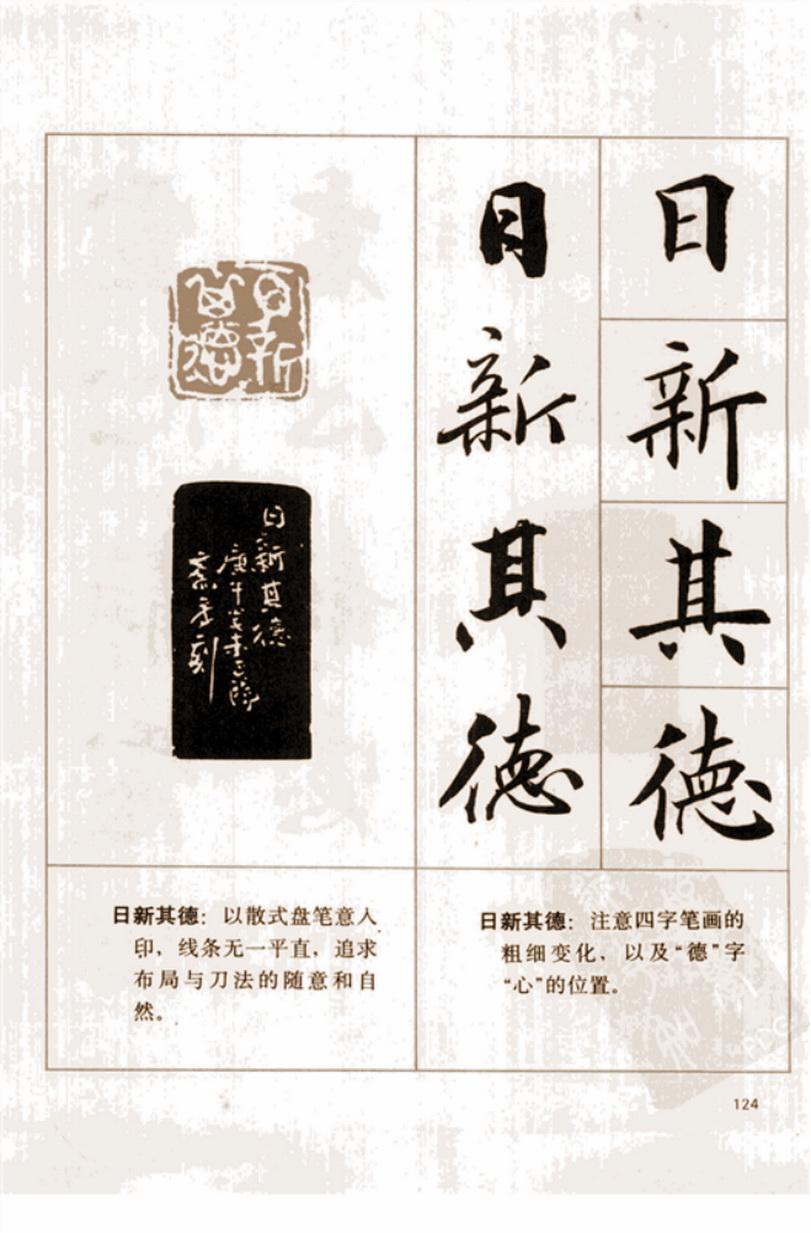 日
新
其
德
日
新
其
德
日新
其德
日新其德
日新其德：以散式盘笔意入
印，线条无一平直，追求
布局与刀法的随意和自
然。
日新其德：注意四字笔画的
粗细变化，以及“德”字
“心”的位置。
124